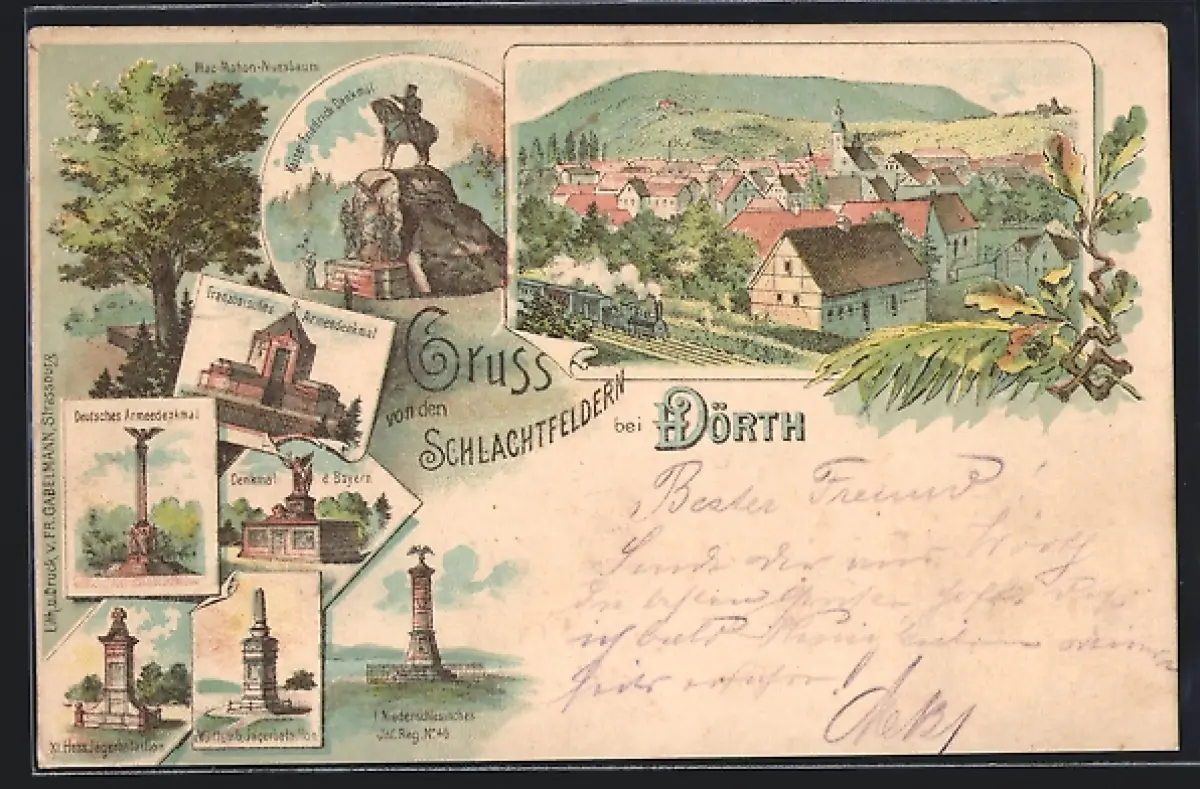 Mac-Mahon-Nussbaum
Kaiser Friedrich Denkmal
Französisches
Armeedenkmal
Gruss
von den
SCHLACHTFELDERN
bei WÖRTH
Deutsches Armeedenkmal
Denkmal d. Bayern
XI. Hess. Jägerbataillon
Württemb. Jägerbataillon
I Niederschlesisches
Inf. Reg. No 46
Lith. u. Druck v. FR. GABELMANN, Strassburg
Bester Freund
Sende dir aus Wörth
ich bald